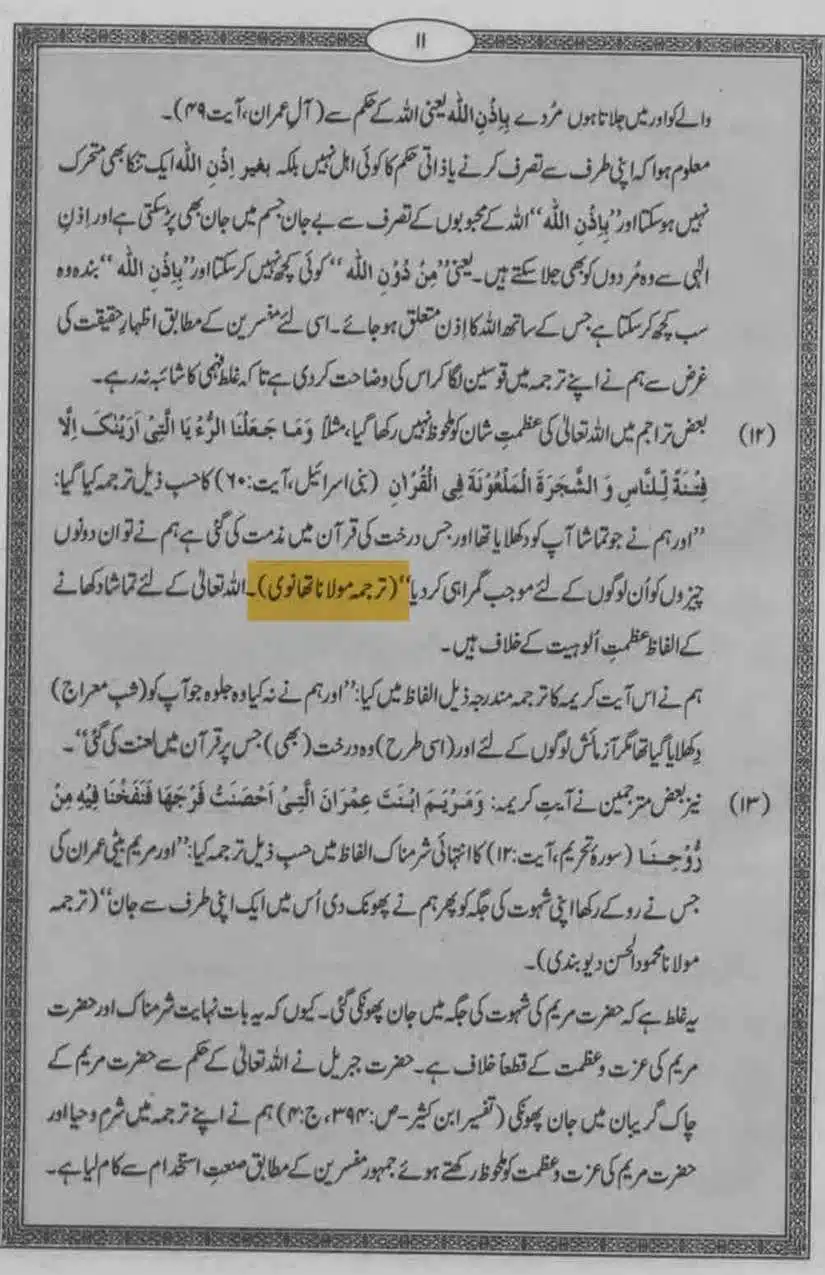 ۱۱
والے کو اور میں جلاتا ہوں مُردے بِاِذْنِ اللّٰه یعنی اللہ کے حکم سے (آلِ عمران، آیت ۴۹)۔
معلوم ہوا کہ اپنی طرف سے تصرف کرنے یا ذاتی حکم کا کوئی اہل نہیں بلکہ بغیر اِذْنِ اللّٰه ایک تنکا بھی متحرک
نہیں ہوسکتا اور ”بِاِذْنِ اللّٰه“ اللہ کے محبوبوں کے تصرف سے بے جان جسم میں جان بھی پڑسکتی ہے اور اِذنِ
الٰہی سے وہ مُردوں کو بھی جلا سکتے ہیں۔ یعنی ”مِنْ دُوْنِ اللّٰه“ کوئی کچھ نہیں کرسکتا اور ”بِاِذْنِ اللّٰه“ بندہ وہ
سب کچھ کرسکتا ہے جس کے ساتھ اللہ کا اِذن متعلق ہوجائے۔ اسی لئے مفسرین کے مطابق اظہارِ حقیقت کی
غرض سے ہم نے اپنے ترجمہ میں قوسین لگا کر اس کی وضاحت کردی ہے تاکہ غلط فہمی کا شائبہ نہ رہے۔
(۱۲) بعض تراجم میں اللہ تعالیٰ کی عظمتِ شان کو ملحوظ نہیں رکھا گیا، مثلاً وَمَا جَعَلْنَا الرُّءْيَا الَّتِىْ اَرَيْنٰكَ اِلَّا
فِتْنَةً لِّلنَّاسِ وَ الشَّجَرَةَ الْمَلْعُوْنَةَ فِى الْقُرْاٰنِ (بنی اسرائیل، آیت:۶۰) کا حسب ذیل ترجمہ کیا گیا:
”اور ہم نے جو تماشا آپ کو دکھلایا تھا اور جس درخت کی قرآن میں مذمت کی گئی ہے ہم نے تو ان دونوں
چیزوں کو اُن لوگوں کے لئے موجب گمراہی کردیا“ (ترجمہ مولانا تھانوی)۔ اللہ تعالیٰ کے لئے تماشا دکھانے
کے الفاظ عظمتِ اُلوہیت کے خلاف ہیں۔
ہم نے اس آیت کریمہ کا ترجمہ مندرجہ ذیل الفاظ میں کیا: ”اور ہم نے نہ کیا وہ جلوہ جو آپ کو (شبِ معراج)
دکھلایا گیا تھا مگر آزمائش لوگوں کے لئے اور (اسی طرح) وہ درخت (بھی) جس پر قرآن میں لعنت کی گئی“۔
(۱۳) نیز بعض مترجمین نے آیتِ کریمہ: وَمَرْيَمَ ابْنَتَ عِمْرَانَ الَّتِىْ اَحْصَنَتْ فَرْجَهَا فَنَفَخْنَا فِيْهِ مِنْ
رُّوْحِنَا (سورۂ تحریم، آیت:۱۲) کا انتہائی شرمناک الفاظ میں حسبِ ذیل ترجمہ کیا: ”اور مریم بیٹی عمران کی
جس نے روکے رکھا اپنی شہوت کی جگہ کو پھر ہم نے پھونک دی اُس میں ایک اپنی طرف سے جان“ (ترجمہ
مولانا محمود الحسن دیوبندی)۔
یہ غلط ہے کہ حضرت مریم کی شہوت کی جگہ میں جان پھونکی گئی۔ کیوں کہ یہ بات نہایت شرمناک اور حضرت
مریم کی عزت و عظمت کے قطعاً خلاف ہے۔ حضرت جبریل نے اللہ تعالیٰ کے حکم سے حضرت مریم کے
چاک گریبان میں جان پھونکی (تفسیر ابن کثیر-ص:۳۹۴، ج:۴) ہم نے اپنے ترجمہ میں شرم و حیا اور
حضرت مریم کی عزت و عظمت کو ملحوظ رکھتے ہوئے جمہور مفسرین کے مطابق صنعتِ استخدام سے کام لیا ہے۔